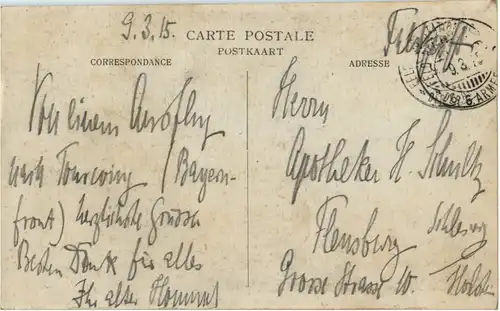 9.3.15.
CARTE POSTALE
POSTKAART
CORRESPONDANCE
ADRESSE
Feldpost
9.3.15
6. ARMEE
Von einem Ausflug
nach Tourcoing (Bayern-
front) herzlichste Grüsse
Besten Dank für alles
Ihr alter
Herrn
Apotheker H. Schultz
Flensburg
Schleswig
Holstein
Grosse Strasse 10.